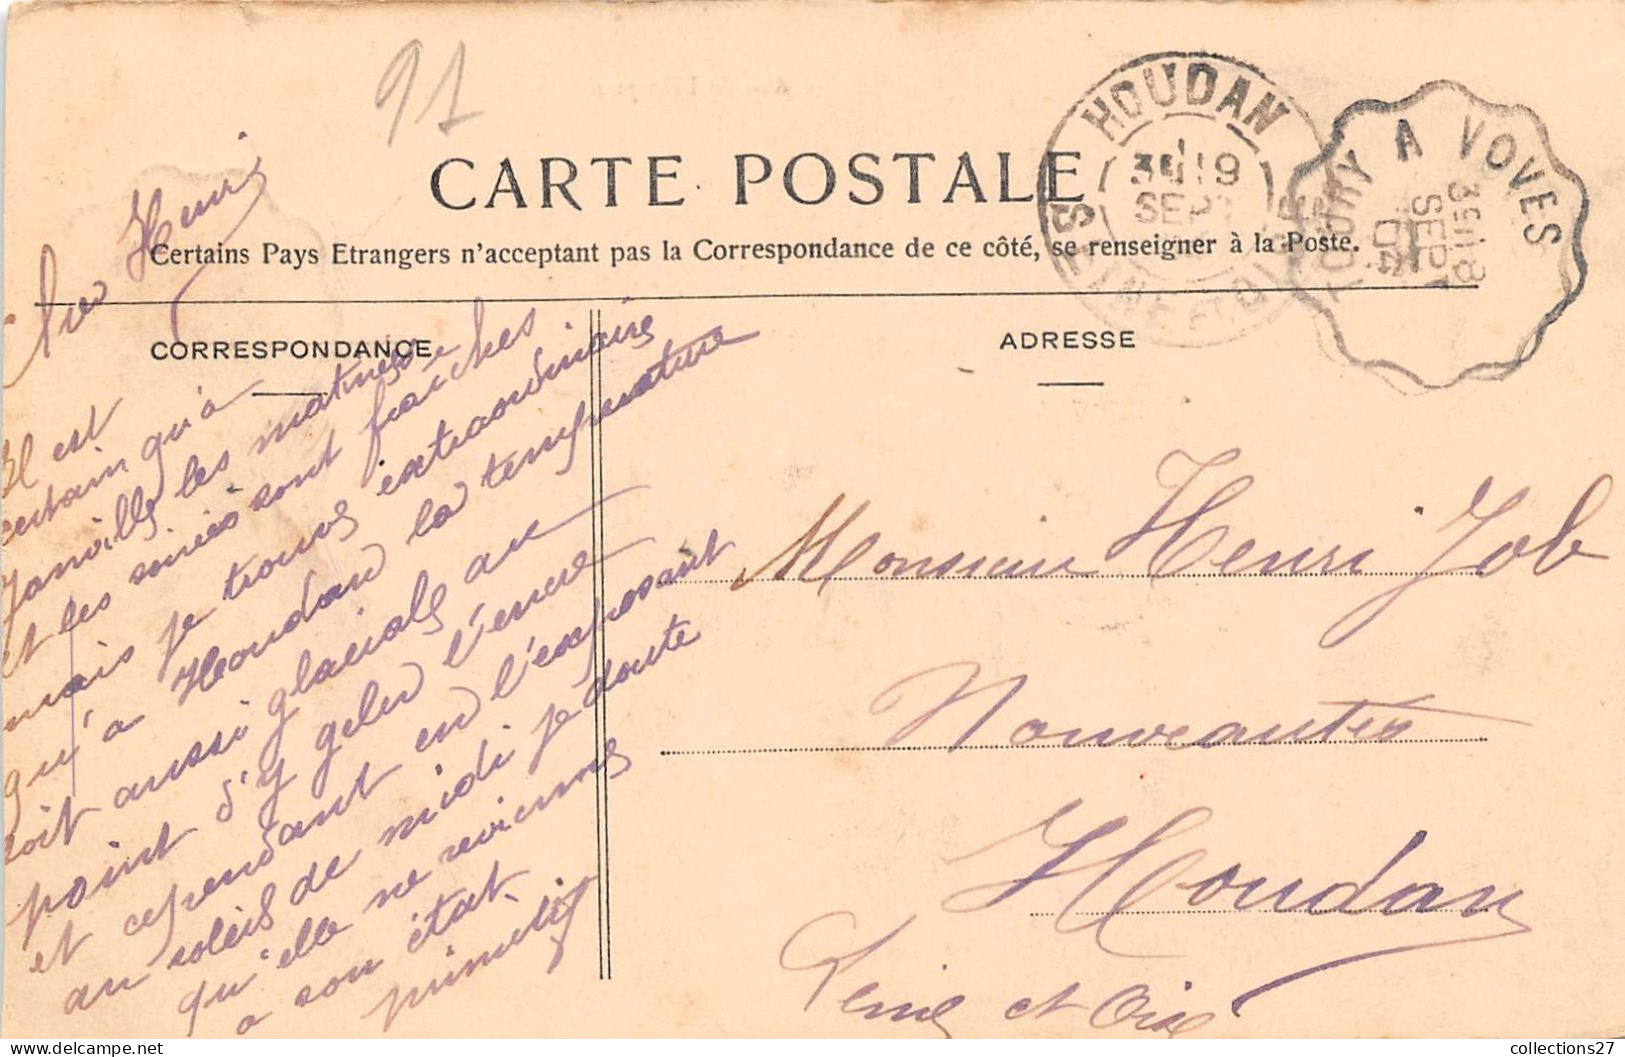 91
CARTE POSTALE
Certains Pays Etrangers n'acceptant pas la Correspondance de ce côté, se renseigner à la Poste.
CORRESPONDANCE
ADRESSE
HOUDAN
SEINE-ET-OISE
3E 19
SEPT
TOURY A VOVES
3E 18
SEPT
04
Henri
Il est
certain qu'à
Janville les matinées
et les soirées sont fraîches
mais je trouve extraordinaire
qu'à Houdan la température
soit aussi glaciale au
point d'y geler l'encre
et cependant en l'exposant
au soleil de midi je doute
qu'elle ne revienne
a son état
primitif
Monsieur Henri Job
Nouveautés
Houdan
Seine et Oise
collections27